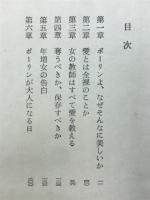 目次
第一章　ポーリンよ、なぜそんなに美しいか
第二章　愛とは全裸のことか
第三章　女の教師はすべて愛を教える
第四章　奪うべきか、保存すべきか
第五章　年増女の告白
第六章　ポーリンが大人になる日